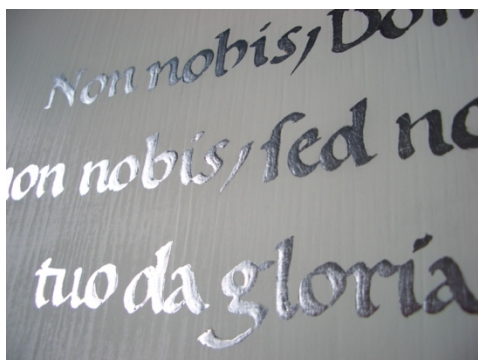 Non nobis, Dom
non nobis, ſed no
tuo da gloria